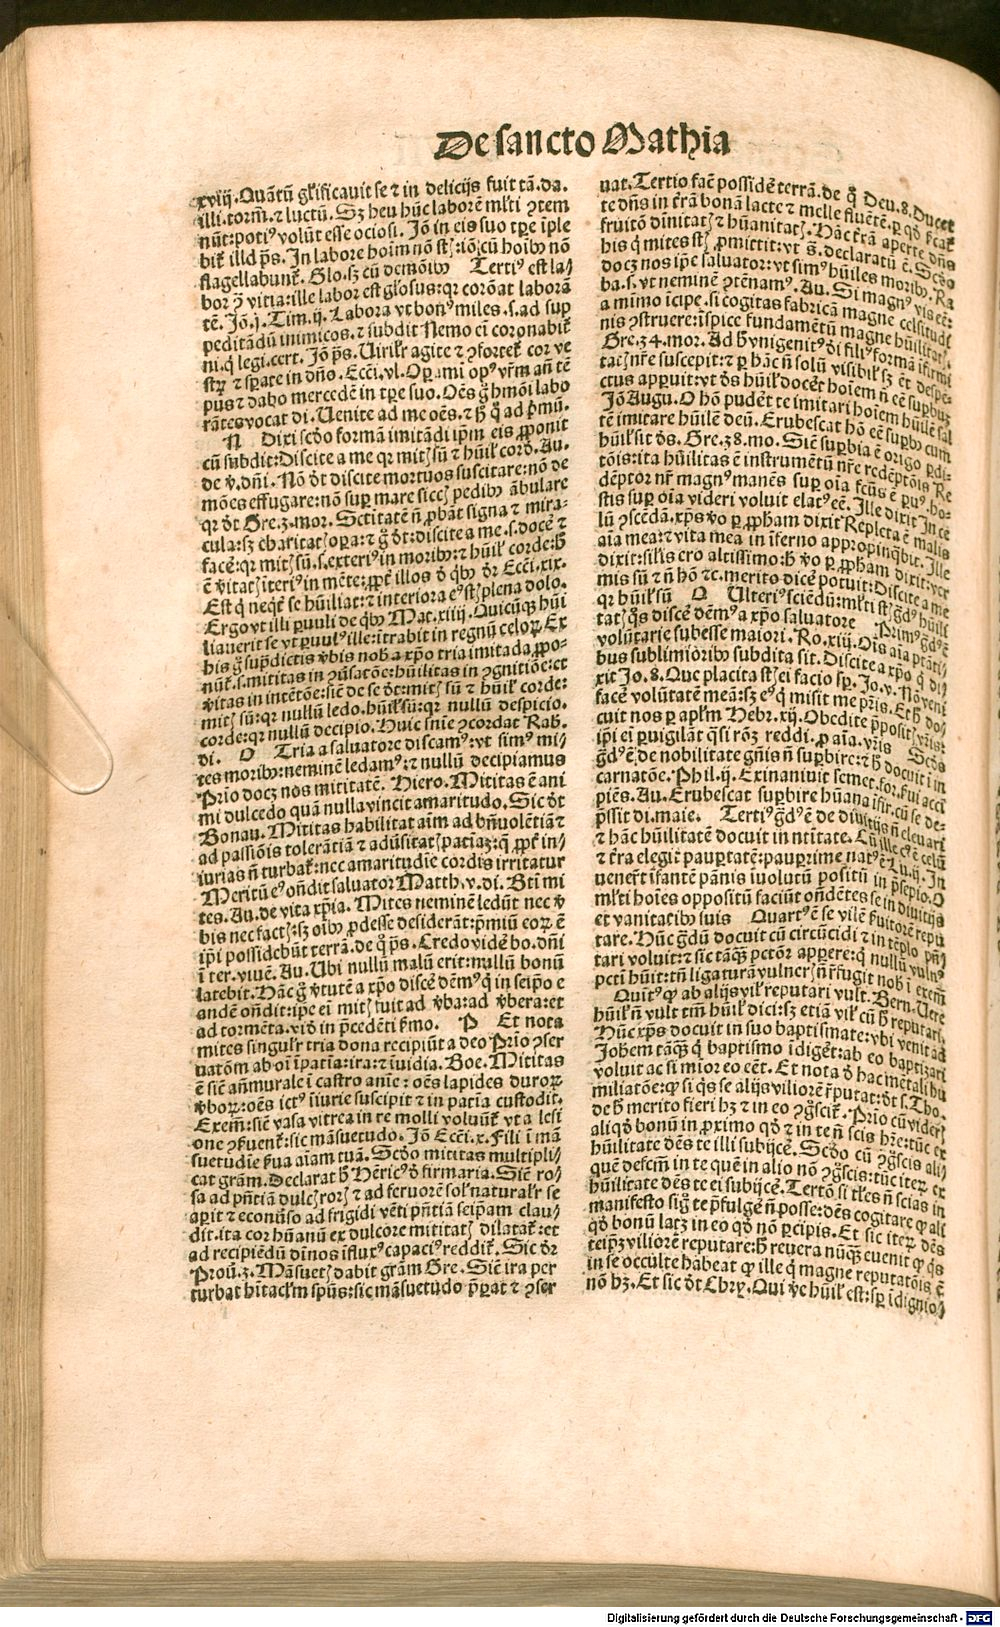 De sancto Mathia
xviij. Quãtũ gl'ificavit se ⁊ in delicijs fuit tã. da.
illi. torm̃. ⁊ luctũ. Sꝫ heu hũc laborẽ ml'ti ꝯtem
nũt: potiꝰ volũt esse ociosi. Jõ in eis suo tꝑe ĩple
bit̃ illd ps̃. In labore hoim nõ st̃: iõ cũ hoĩbꝰ nõ
flagellabunt̃. Glo. sꝫ cũ demõibꝰ Tertiꝰ est la⸗
bor ꝯ̃ vitia: ille labor est gl'osus: qr corõat laborã
tẽ. Jõ. j. Tim. ij. Labora vt bonꝰ miles. s. ad sup
peditãdũ inimicos. ⁊ subdit Nemo eĩ coronabit̃
ni. q̇ legi. cert. Jõ ps̃. Uiril'r agite ⁊ ꝯfortet̃ cor ve
strꝝ ⁊ sꝑate in dño. Ecc̃i. vl. Oꝑami opꝰ vr̃m añ tẽ
pus ⁊ dabo mercedẽ in tꝑe suo. Oẽs g̊ hmõi labo
rãtes vocat di. Uenite ad me oẽs. ⁊ ħ q̊ ad p̃mũ.
N Dixi sc̃do formã imitãdi ip̃m eis ꝓponit
cũ subdit: Discite a me qr mitꝭ sũ ⁊ hũil' cord̃. Au.
de v̾. dñi. Nõ dt̃ discite mortuos suscitare: nõ de
mões effugare: nõ suꝑ mare siccꝭ pedibꝰ ãbulare
qr dt̃ Gre. 3. mor. Sctitatẽ ñ ꝓbãt signa ⁊ mira⸗
cula: sꝫ charitatꝭ oꝑa: ⁊ g̊ dt̃: discite a me. s. docẽ ⁊
facẽ: qr mitꝭ sũ. s. exteriꝰ in moribꝰ: ⁊ hũil' corde: ħ
ẽ v̾itatꝭ ĩteriꝰ in mẽte: ꝓpt̃ illos d̾ qbꝰ dr̃ Ecc̃i. xix.
Est q̇ neqt̃ se hũiliat: ⁊ interiora eꝰ stꝭ plena dolo.
Ergo vt illi ꝑuuli de qbꝰ Mat. xiiij. Quicũqꝫ hũi
liauerit se vt ꝑuulꝰ ille: ĩtrabit in regnũ celoꝝ. Ex
his g̊ sup̃dictis v̾bis nob̾ a xp̃o tria imitãda ꝓpo⸗
nũt̃. s. mititas in ꝯũsatõe: hũilitas in ꝯgnitiõe: et
v̾itas in intẽtõe: siẽ de se dt̃: mitꝭ sũ ⁊ hũil' corde:
mitꝭ sũ: qr nullũ ledo. hũil' sũ: qr nullũ despicio.
corde: qr nullũ decipio. Huic sniẽ ꝯcordat Rab.
di. O Tria a saluatore discamꝰ: vt simꝰ mi⸗
tes moribꝰ: neminẽ ledamꝰ: ⁊ nullũ decipiamus
Prĩo docꝫ nos mititatẽ. Hiero. Mititas ẽ ani
mi dulcedo quã nulla vincit amaritudo. Sic dt̃
Bonau. Mititas habilitat aĩm ad bñuolẽtiã ⁊
ad passiõis tolerãtiã ⁊ adũsitatꝭ patiaꝫ: q̇ ꝓpt̃ in⸗
iurias ñ turbat̃: nec amaritudĩe cordis irritatur
Meritũ eꝰ oñdit saluator Matth. v. di. Bt̃i mi
tes. Au. de vita xp̃ia. Mites neminẽ ledũt nec v̾
bis nec factꝭ: sꝫ oĩbꝰ ꝓdesse desiderãt: p̃miũ eoꝝ ẽ
ip̃i possidebũt terrã. de q̇ ps̃. Credo vidẽ bo. dñi
ĩ ter. viuẽ. Au. Ubi nullũ malũ erit: nullũ bonũ
latebit. Hãc g̊ v̾tutẽ a xp̃o discẽ dẽmꝰ q̇ in seip̃o e
andẽ oñdit: ip̃e eĩ mitꝭ fuit ad v̾ba: ad v̾bera: et
ad tormẽta. viꝺ in p̃cedẽti ẜmo. P Et nota
mites singul'r tria dona recipiũt a deo Prĩo ꝯser
uatõm ab oĩ ĩpatĩa: ira: ⁊ ĩuidia. Boe. Mititas
ẽ siẽ añmurale ĩ castro anĩe: oẽs lapides duroꝝ
v̾boꝝ: oẽs ictꝰ ĩiurie suscipit ⁊ in patĩa custodit.
Exem̃: siẽ vasa vitrea in re molli voluũt̃ vt a lesi
one ꝯẜuent̃: sic mãsuetudo. Jõ Ecc̃i. x. Fili ĩ mã
suetudĩe ẜua aĩam tuã. Sc̃do mititas multipli⸗
cat grãm. Declarat ħ Hẽricꝰ d̾ firmaria. Siẽ ro⸗
sa ad pñtiã dulcꝭ rorꝭ ⁊ ad feruorẽ sol' natural'r se
aꝑit ⁊ ecoñũso ad frigidi vẽti pñtiã seip̃am clau⸗
dit. ita cor hũanũ ex dulcore mititatꝭ dilatat̃: et
ad recipiẽdũ diũinos ĩfluxꝰ capaciꝰ reddit̃. Sic dr̃
Prou. 3. Mãsuetꝭ dabit grãm Gre. Siẽ ira per
turbat hĩtacl'm spũs: sic mãsuetudo p̃ꝑat ⁊ ꝯser
uat. Tertio facẽ possidẽ terrã. de q̊ Deu. 8. Ducet
te dñs in t̃rã bonã lacte ⁊ melle fluẽtẽ. ꝑ qd̾ ẜcat̃
fruitõ diuinitatꝭ ⁊ hũanitatꝭ. Hãc t̃rã aperte dñs
his q̇ mites stꝭ ꝓmittit: vt s̃. declaratũ ẽ. Sc̃do
docꝫ nos ip̃e saluator: vt simꝰ hũiles moribꝰ. Ra
ba. s. vt neminẽ ꝯtẽnamꝰ. Au. Si magnꝰ vis eẽ:
a mimo ĩcipe. si cogitas fabricã magne celsitudi
nis ꝯstruere: ĩspice fundamẽtũ magne hũilitatꝭ.
Gre. 34. mor. Ad ħ vnigenitꝰ di filiꝰ formã ifirmi
tatꝭ nr̃e suscepit: ⁊ ꝑ hãc ñ solũ visibil' sꝫ et̃ despe⸗
ctus apparuit: vt ds̃ hũil' docẽt hoĩem ñ eẽ suꝑbuꝫ
Jõ Augu. O hõ pudẽt te imitari hoĩem hũilẽ sal
tẽ imitare hũilẽ deũ. Erubescat hõ eẽ suꝑbꝰ cum
hũil' sit ds̃. Gre. 38. mo. Siẽ suꝑbia ẽ origo ꝑdi⸗
tõis: ita hũilitas ẽ instrumẽtũ nr̃e redẽptõis. Re
dẽptor nr̃ magnꝰ manẽs suꝑ oĩa fctũs ẽ ꝑuꝰ. ho⸗
stis suꝑ oĩa videri voluit elatꝰ eẽ. Ille dixit In ce
lũ ꝯscẽdã. xp̃s v̾o ꝑ ꝓpham dixit Repleta ẽ malis
aĩa mea: ⁊ vita mea in ĩferno appropinqbit. Ille
dixit: sil'is ero altissimo: ħ v̾o ꝑ ꝓpham dixit: ver
mis sũ ⁊ ñ hõ ⁊c. merito dicẽ potuit: Discite a me
qr hũil' sũ O Ulteriꝰ sciẽdũ: ml'ti stꝭ g̊dꝰ hũili
tatꝭ q̊s discẽ dẽmꝰ a xp̃o saluatore Primꝰ g̊dꝰ ẽ
volũtarie subesse maiori. Ro. xiij. Oĩs aĩa ptãti⸗
bus sublimioribꝰ subdita sit. Discite a xp̃o q̇ di⸗
xit Jo. 8. Que placita stꝭ ei facio sꝑ. Jo. v. Nõ veni
facẽ volũtatẽ meã: sꝫ eꝰ q̇ misit me pr̃is. Et ħ do⸗
cuit nos ꝑ apl'm Hebr. xij. Obedite p̃positꝭ vr̃is:
ip̃i eĩ ꝑuigilãt q̊si rõꝫ reddi. ꝓ aĩa. vr̃is Sc̃ds
g̊dꝰ ẽ: de nobilitate gñis ñ suꝑbire: ⁊ ħ docuit ĩ in
carnatõe. Phil. ij. Exinaniuit semet. for. ẜui acci
piẽs. Au. Erubescat suꝑbire hũana ĩfir. cũ se de⸗
p̃ssit di. maie. Tertiꝰ g̊dꝰ ẽ de diuitijs ñ eleuari
⁊ hãc hũilitatẽ docuit in ntĩtate. Cũ ille cꝰ ẽ celũ
⁊ t̃ra elegit paupertatẽ: pauꝑrime natꝰ ẽ Lu. ij. In
uener̃t ĩfantẽ pãnis ĩuolutũ positũ in p̃sepio. O
ml'ti hoĩes oppositũ faciũt oñdẽtes se in diuitijs
et vanitatibꝰ suis Quartꝰ ẽ se vilẽ ẜuitorẽ repu
tare. Hũc g̊dũ docuit cũ circũcidi ⁊ in tẽplo pñ⸗
tari voluit: ⁊ sic tãqꝫ pctõr apꝑere: q̇ nullũ vulnꝰ
pcti hũit: tñ ligaturã vulnerꝭ ñ r̃fugit nob̾ ĩ exem̃
Quĩtꝰ ꝙ ab alijs vil' reputari vult. Bern. Vere
hũil' ñ vult tm̃ hũil' dici: sꝫ etiã vil' cũ ħ reputari.
Hũc xp̃s docuit in suo baptismate: vbi venit ad
Johẽm tãqꝫ q̇ baptismo ĩdiget: ab eo baptizari
voluit ac si mĩor eo eẽt. Et nota d̾ hac metali hu
miliatõe: ꝙ si qs̃ se alijs viliorẽ r̃putat: dt̃ s. Tho.
de ħ merito fieri hꝫ ⁊ in eo ꝯg̊scit̃. Prĩo cũ videꝭ
aliqd̾ bonũ in ꝓximo qd̾ ⁊ in te ñ scis hr̃e: tũc ex
hũilitate dẽs te illi subijcẽ. Sc̃do cũ ꝯg̊scis ali⸗
quẽ defcm̃ in te quẽ in alio nõ ꝯg̊scis: tũc iteꝝ ex
hũilitate dẽs te ei subijcẽ. Tertõ si tl'es ñ scias in
manifesto sig̊ te p̃fulgẽ ñ posse: dẽs cogitare ꝙ ali
qd̾ bonũ latꝫ in eo qd̾ nõ ꝑcipis. Et sic iteꝝ dẽs
teip̃ꝫ viliorẽ reputare: ħ reuera nũqꝫ cuenit ꝙ qs̃
in se occulte habeat ꝙ ille q̇ magne reputatõis ẽ
nõ hꝫ. Et sic dt̃ Chrẏ. Qui v̾e hũil' est: sꝑ ĩdignio⸗
Digitalisierung gefördert durch die Deutsche Forschungsgemeinschaft - DFG